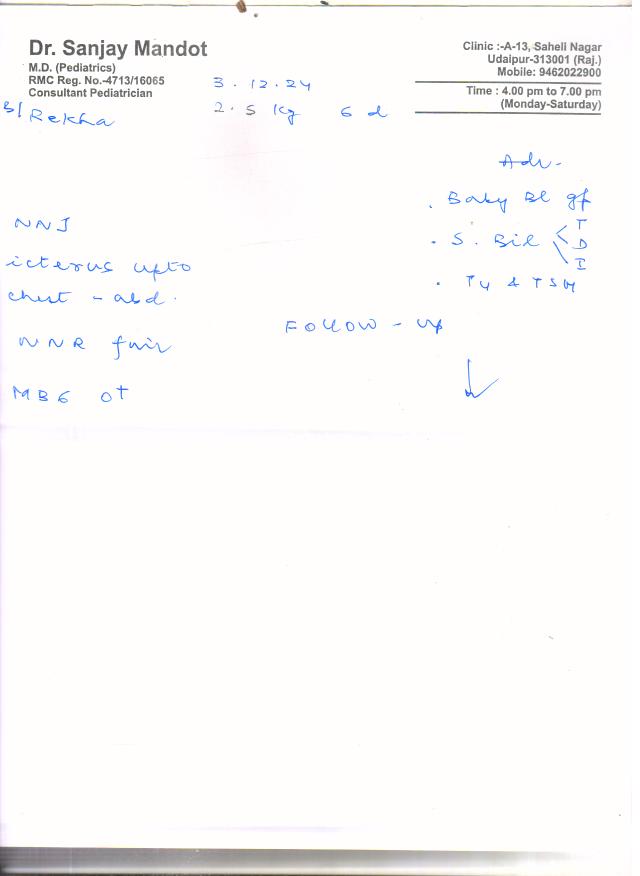 Dr. Sanjay Mandot
M.D. (Pediatrics)
RMC Reg. No.-4713/16065
Consultant Pediatrician
Clinic :-A-13, Saheli Nagar
Udaipur-313001 (Raj.)
Mobile: 9462022900
Time : 4.00 pm to 7.00 pm
(Monday-Saturday)
3.12.24
B/ Rekha
2.5 kg 6 d
Adv-
. Baby Bl gp
. S. Bil < T
D
I
. T4 & TSH
NNJ
icterus upto
chest - abd.
NNR fair
MBG O+
Follow-up